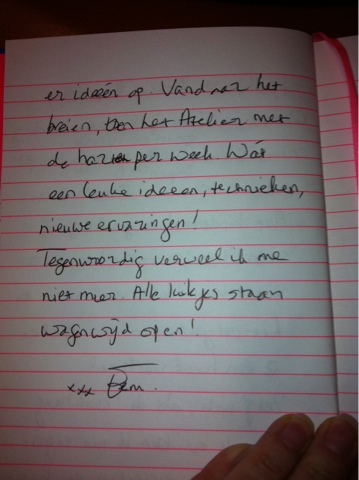 er ideeën op. Vandaar het
breien, het Atelier met
de per week. Wat
een leuke ideeen, technieken,
nieuwe ervaringen!
Tegenwoordig verveel ik me
niet meer. Alle luikjes staan
wagenwijd open!
xxx